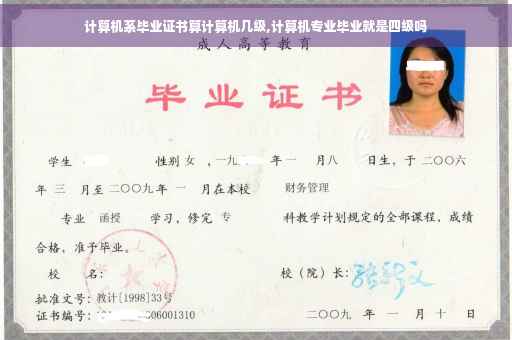 计算机系毕业证书算计算机几级,计算机专业毕业就是四级吗
成人高等教育
毕业证书
学生 性别 女 ,一九 年一 月八 日生,于二〇〇六
年 三 月至二〇〇九年 一 月在本校 财务管理
专业 函授 学习,修完 专 科教学计划规定的全部课程,成绩
合格,准予毕业。
校 名: 校(院)长:
批准文号:教计[1998]33号
证书编号: 06001310 二〇〇九 年 一 月 十 日